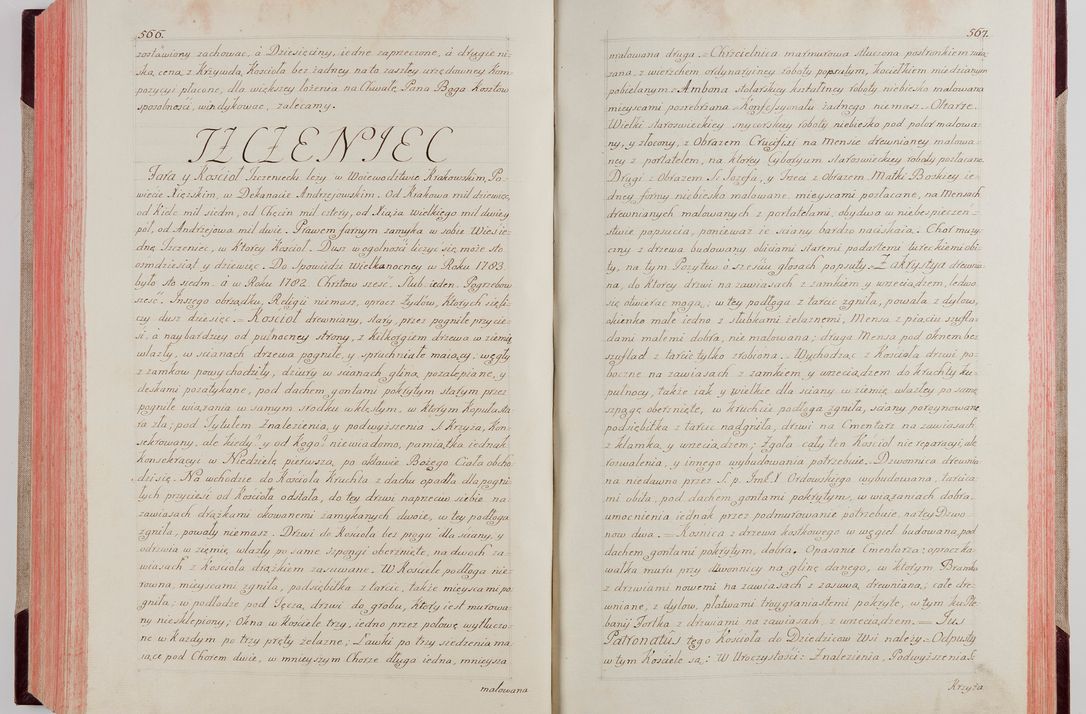 566.
zostawiony zachować, á Dziesięciny, iedne zaprzeczone, á drugie ni-
ską ceną z Krzywdą Kościoła bez żadney na to zaszłey urzędowney Kom-
pozycyi płacone, dla większey łożenia na Chwałę Pana Boga Kosztow
sposobności, windykować, zalecamy.
IZCZENIEC
Fara y Kościoł Szczeniecki leży w Woiewodztwie Krakowskim, Po-
wiecie Xięskim, w Dekanacie Andrzeiowskim. Od Krakowa mil dziewięć,
od Kielc mil siedm, od Chęcin mil cztery, od Xiąża Wielkiego mil dwie y
poł, od Andrzeiowa mil dwie. Prawem farnym zamyka w sobie Wieś ie-
dnę Szczeniec, w Ktorey Kościoł. Dusz w ogolności liczyć się może sto
osmdziesiąt y dziewięć. Do Spowiedzi Wielkanocney w Roku 1783.
było sto siedm. a w Roku 1782. Chrztow sześć. Slub ieden. Pogrzebow
sześć. Inszego obrządku, Religii niemasz, oprocz Żydow, Ktorych zięli-
czy dusz dziesięć. = Kościoł drewniany, stary, przez pogniłe przycie-
si, a naybardziey od pułnocney strony, z Kilkorgiem drzewa w ziemię
wlazły, w scianach drzewa pogniłe, y spruchniałe maiący, węgły
z zamkow powychodziły, dziury w scianach gliną pozalepiane, y
deskami pozatykane, pod dachem gontami pokrytym starym przez
pogniłe wiązania w samym srodku wklęsłym, w Ktorym Kopuła sta-
ra zła; pod Tytułem Znalezienia, y podwyższenia S. Krzyża, Kon-
sekrowany, ale kiedy? y od Kogo? niewiadomo, pamiątka iednak
Konsekracyi w Niedzielę pierwszą po oktawie Bożego Ciała obcho-
dzi się. Na wchodzie do Kościoła Kruchta z dachu opadła dla pogni-
łych przyciesi od Kościoła odstała, do tey drzwi naprzeciw siebie na
zawiasach drążkami okowanemi zamykanych dwoie, w tey podłoga
zgniła, powały niemasz. Drzwi do Kościoła bez progu dla sciany, y
odrzwia w ziemię wlazły po same szpongi oberznięte, na dwoch za-
wiasach z Kościoła drążkiem zasuwane. W Kościele podłoga nie-
rowna, mieyscami zgniła, podsiębitka z tarcic, także mieyscami po-
gniła; w podłodze pod Tęczą drzwi do grobu, ktory iest murowa-
ny niesklepiony; Okna w kościele trzy, iedno przez połowę wytłuczo-
ne w każdym po trzy pręty żelazne; Ławki po trzy siedzenia ma-
iące pod Chorem dwie, w mnieyszym Chorze długa iedna, mnieysza
malowana
567.
malowana druga. = Chrzcielnica marmurowa stłuczona postronkiem zwią-
zana, z wierzchem ordynaryiney roboty popsutym, kociełkiem miedzianym
pobielanym. = Ambona stolarskiey kształtney roboty niebiesko malowana
mieyscami posrebrzana. = Konfesyonału żadnego niemasz. = Ołtarze.
Wielki staroswieckiey snycerskiey roboty niebiesko pod polor malowa-
ny, y złocony, z Obrazem Crucifixi na Mensie drewnianey malowa-
ney z portatelem, na ktorey Cyboryum staroswieckiey roboty pozłacane.
Drugi z Obrazem S. Jozefa, y Trzeci z Obrazem Matki Boskiey ie-
dney formy niebiesko malowane, mieyscami pozłacane, na Mensach
drewnianych malowanych z portatelami, obydwa w niebezpieczeń-
stwie popsucia, ponieważ ie sciany bardzo naciskaią. = Chor muzy-
czny z drzewa budowany obiciami staremi podartemi tureckiemi obi-
ty, na tym Pozytew ó sześciu głosach popsuty. = Zakrystya drewnia-
na, do ktorey drzwi na zawiasach z zamkiem y wrzeciądzem, ledwo
się otwierać mogą; w tey podłoga z tarcic zgniła, powała z dylow,
okienko małe iedno z słubkami żelaznemi, Mensa z piąciu szufla-
dami małemi dobra, nie malowana; druga Mensa pod oknem bez
szuflad z tarcic tylko zrobiona. = Wychodząc z Kościoła drzwi po-
boczne na zawiasach z zamkiem y wrzeciądzem do kruchty ku
pułnocy, także iak y wielkie dla sciany w ziemię wlazłey po samą
szpągę oberznięte, w kruchcie podłoga zgniła, sciany porozynowane
podsiębitka z tarcic nadgniła, drzwi na Cmentarz na zawiasach
z klamką, y wrzeciądzem; Zgoła cały ten Kościoł nie reparacyi, ale
rozwalenia, y innego wybudowania potrzebuie. = Dzwonnica drewnia-
na niedawno przez S. p. Jmć X. Ordowskiego wybudowana, tarcica-
mi obita, pod dachem gontami pokrytym, w wiązaniach dobra
umocnienia iednak przez podmurowanie potrzebuie, na tey Dzwo-
now dwa. = Kosnica z drzewa kostkowego w węgieł budowana, pod
dachem gontami pokrytym, dobra. Opasanie Cmentarza: oprocz ka-
wałka muru przy dzwonnicy na glinę danego, w ktorym Bramka
z drzwiami nowemi na zawiasach z zasuwą drewnianą; całe dre-
wniane, z dylow, płatwami troygraniastemi pokryte, w tym ku Ple-
banij Fortka z drzwiami na zawiasach, z wrzeciądzem. = Jus
Patronatus tego Kościoła do Dziedzicow Wsi należy. = Odpusty
w tym Kościele są: W Uroczystości: Znalezienia, Podwyższenia S.
Krzyża